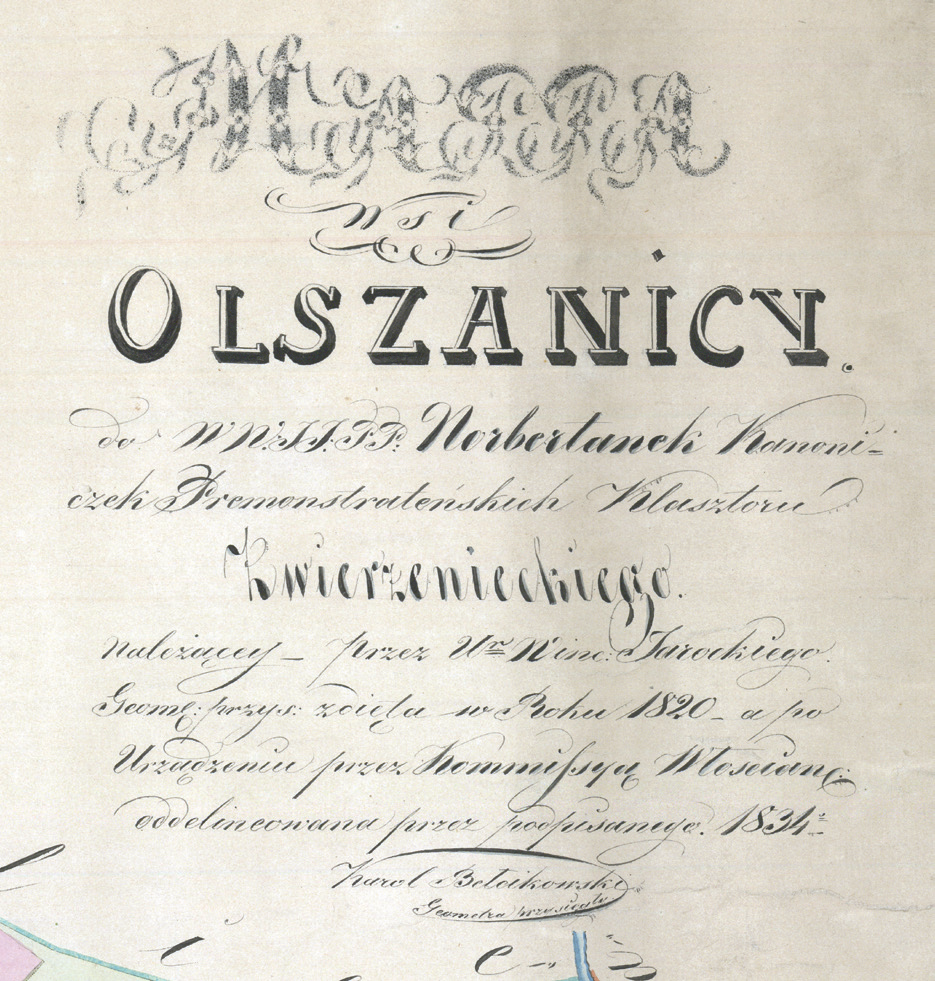 MAPPA
Wsi
OLSZANICY.
do WW.JJ.PP. Norbertanek Kanoni-
czek Premonstrateńskich Klasztoru
Zwierzenieckiego.
należącey – przez Ur Winc: Jarockiego
Geomę: przys: zdięta w Roku 1820 – a po
Urządzeniu przez Kommissyą Włościanę:
oddelineowana przez podpisanego. 1834
Karol Betcikowski
Geometra przysięgły